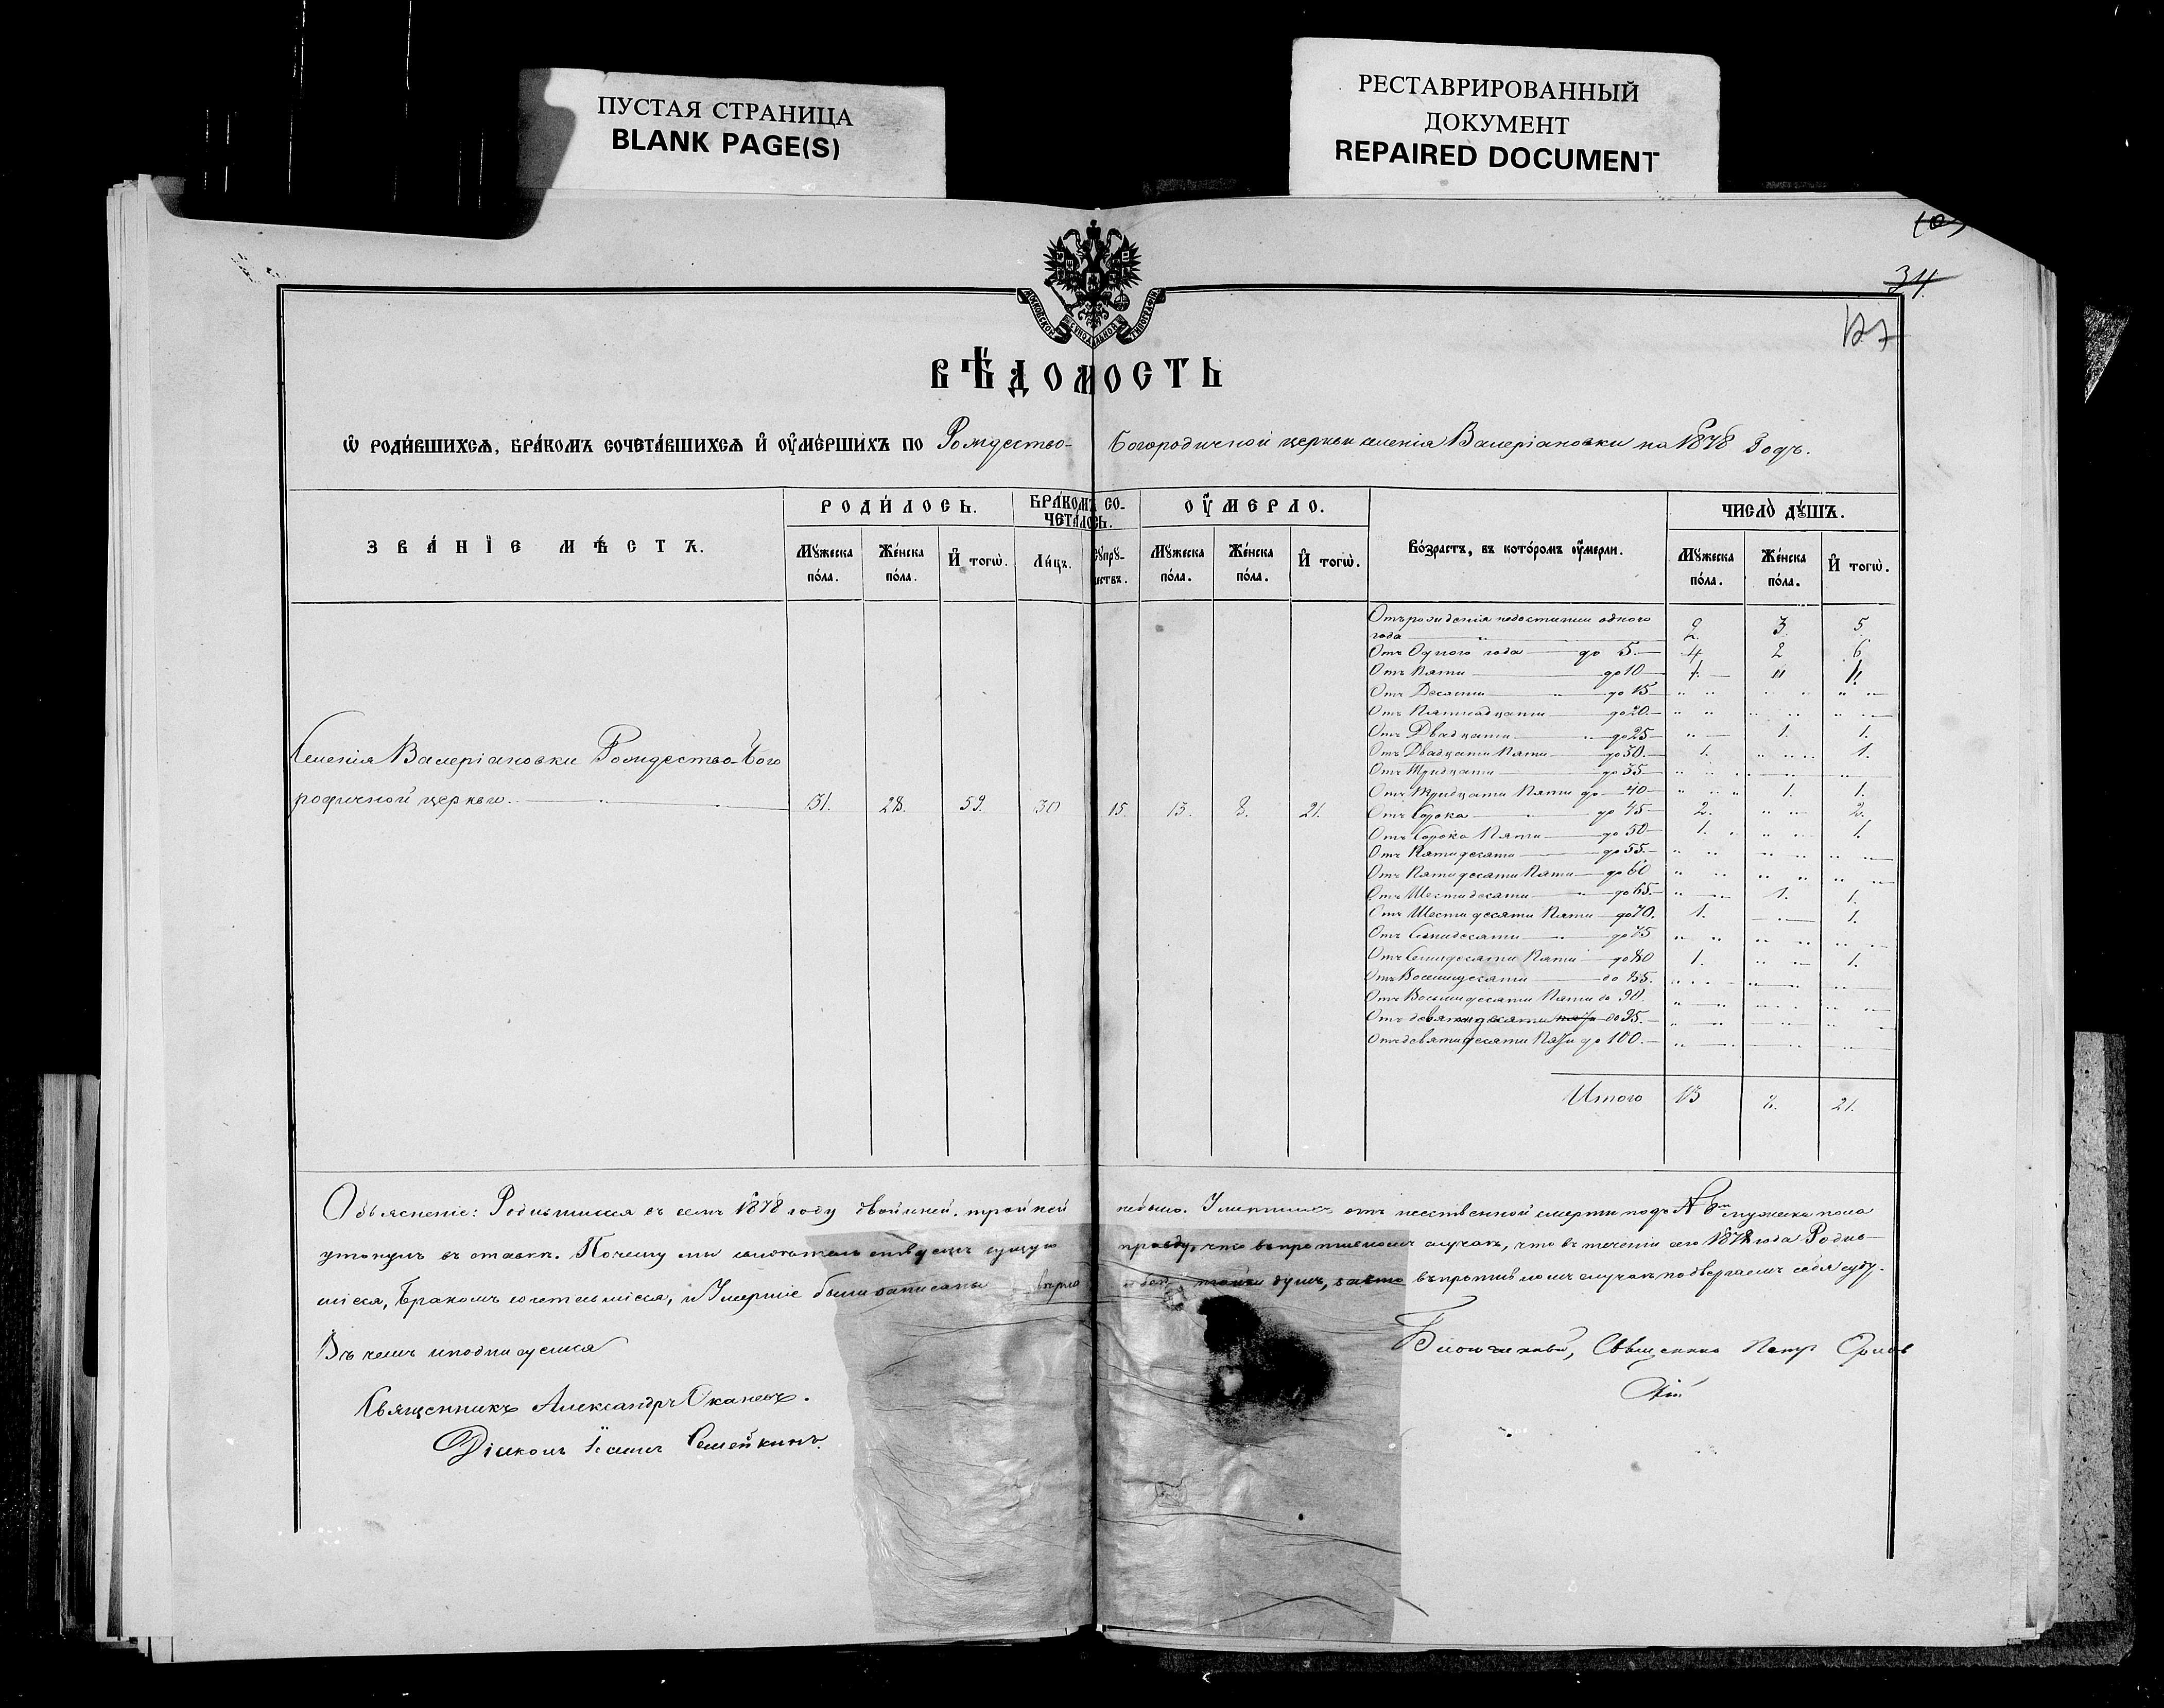 ПУСТАЯ СТРАНИЦА
BLANK PAGE(S)
РЕСТАВРИРОВАННЫЙ
ДОКУМЕНТ
REPAIRED DOCUMENT
34
МОСКОВСКОЙ СѴНОДАЛЬНОЙ ТИПОГРАФІИ
ВѢ́ДОМОСТЬ
Ѡ҆ РОДИ́ВШИХСѦ, БРА́КОМЪ СОЧЕТА́ВШИХСѦ И҆ ОУ҆МЕ́РШИХЪ ПО Рождество-Богородичной церкви селенія Валеріановки на 1878 Годъ.
ЗВА́НІЕ МѢ́СТЪ.
РОДИ́ЛОСЬ.
БРА́КОМЪ СО-
ЧЕТА́ЛОСЬ.
ОУ҆́МЕРЛО.
Во́зрастъ, въ кото́ромъ оу҆́мерли.
ЧИСЛО̀ ДꙊ́ШЪ.
Мꙋ́жеска по́ла.
Же́нска по́ла.
И҆ тогѡ̀.
Ли́цъ.
Сꙋпрꙋ́-
жествъ.
Мꙋ́жеска по́ла.
Же́нска по́ла.
И҆ тогѡ̀.
Мꙋ́жеска по́ла.
Же́нска по́ла.
И҆ тогѡ̀.
Селенія Валеріановки Рождество-Бого
родичной церкви. 31. 28. 59. 30 15. 13. 8. 21.
Отъ рожденія недостигши одного
года 2. 3 5.
Отъ Одного года до 5. 4 2 6
Отъ Пяти до 10 1. „ 1.
Отъ Десяти до 15 „ „ „
Отъ Пятнадцати до 20. „ „ „
Отъ Двадцати до 25 „ 1. 1.
Отъ Двадцати Пяти до 30. 1. „ 1.
Отъ Тридцати до 35 „ „ „
Отъ Тридцати Пяти до 40 „ 1. 1.
Отъ Сорока до 45 2. „ 2.
Отъ Сорока Пяти до 50 1. „ 1.
Отъ Пятидесяти до 55. „ „ „
Отъ Пятидесяти Пяти до 60 „ „ „
Отъ Шестидесяти до 65. „ 1. 1.
Отъ Шестидесяти Пяти до 70. 1. „ 1.
Отъ Семидесяти до 75 „ „ „
Отъ Семидесяти Пяти до 80 1. „ 1.
Отъ Восмидесяти до 85. „ „ „
Отъ Восмидесяти Пяти до 90. „ „ „
Отъ девятидесяти пяти до 95. „ „ „
Отъ девятидесяти Пяти до 100. „ „ „
Итого 13 8. 21.
Объясненіе: Родившихся въ семъ 1878 году двойней, тройней небыло. Умершихъ отъ неестественной смерти подъ № 6м мужеска пола
утонулъ въ ставкѣ. Почему мы правду, что въ противномъ случаѣ, что въ теченіи сего 1878 года Родив-
шіеся, Бракомъ сочетавшіеся, и Умершіе были записаны вѣрно и безъ душъ, въ противномъ случаѣ подвергаемъ себя суду.
Въ чемъ и подписуемся
Священникъ Александръ Окановъ.
Діаконъ Іоаннъ Семейкинъ.
Благочинный, Священникъ Петръ Орлов
скій